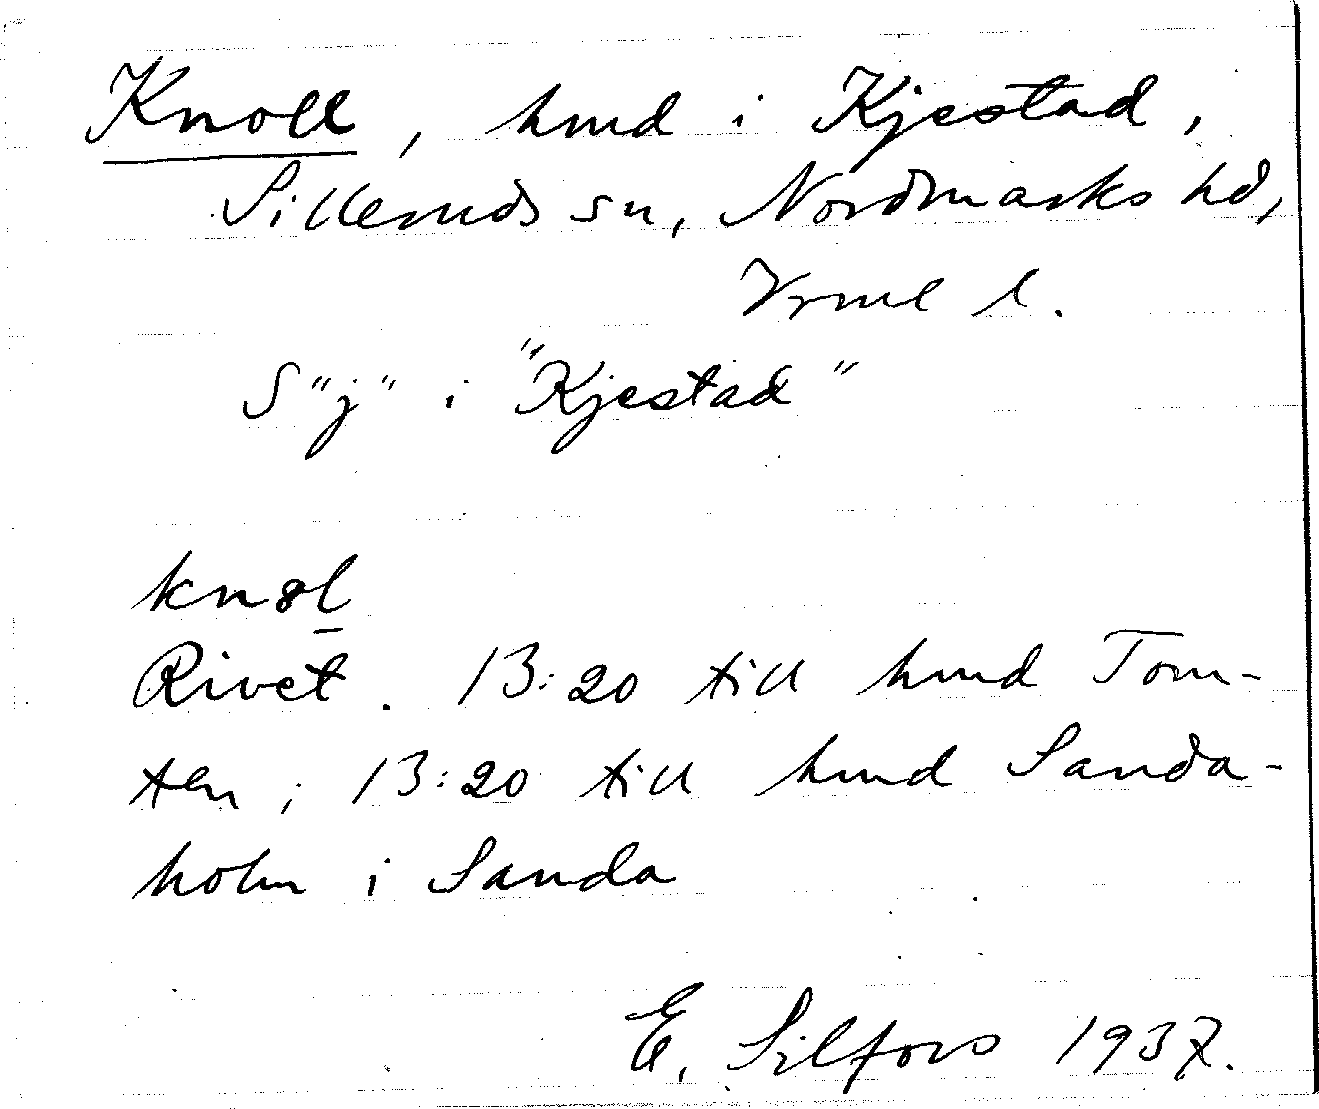 Knoll, hmd i Kjestad,
Silleruds sn, Nordmarks hd,
Vrml l.
S "j" i "Kjestad"
knøl
Rivet. 13:20 till hmd Tom-
ten; 13:20 till hmd Sanda-
holm i Sanda
E. Silfors 1937.